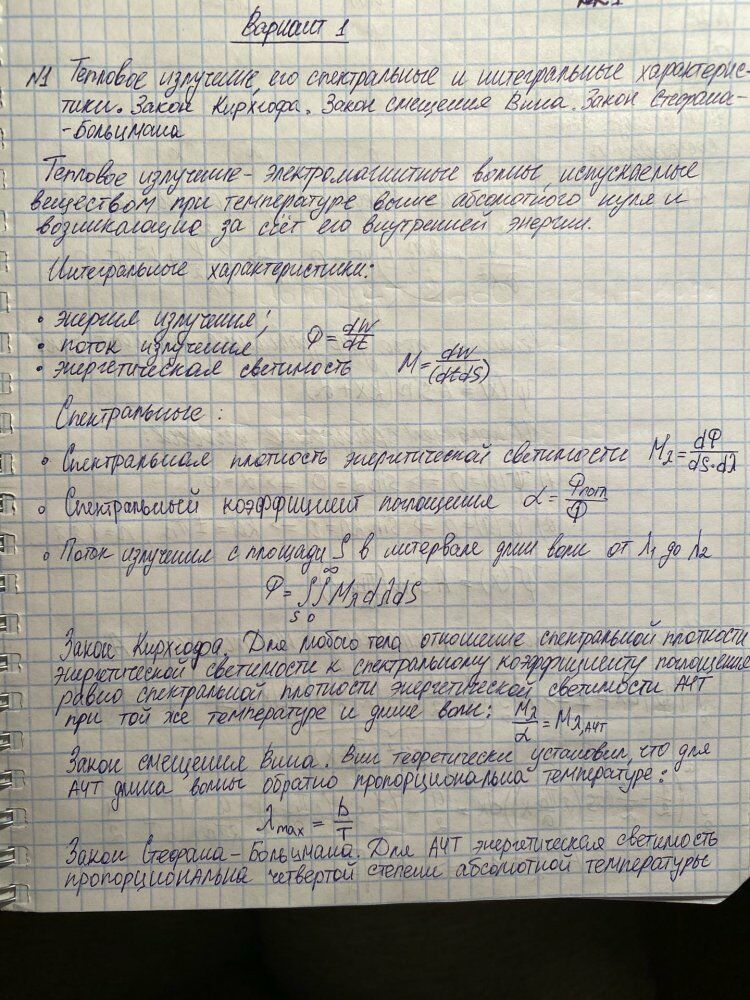 Вариант 1
№1 Тепловое излучение, его спектральные и интегральные характерис-
тики. Закон Кирхгофа. Закон смещения Вина. Закон Стефана-
-Больцмана
Тепловое излучение - электромагнитные волны, испускаемые
веществом при температуре выше абсолютного нуля и
возникающие за счёт его внутренней энергии.
Интегральные характеристики:
• энергия излучения;
• поток излучения Φ = dW/dt
• энергетическая светимость M = dW/(dtdS)
Спектральные:
• Спектральная плотность энергетической светимости Mλ = dΦ/dS·dλ
• Спектральный коэффициент поглощения α = Φпогл/Φ
• Поток излучения с площади S в интервале длин волн от λ1 до λ2
Φ = ∫S ∫0^∞ Mλ dλdS
Закон Кирхгофа. Для любого тела отношение спектральной плотности
энергетической светимости к спектральному коэффициенту поглощения
равно спектральной плотности энергетической светимости АЧТ
при той же температуре и длине волн: Mλ/α = Mλ,АЧТ
Закон смещения Вина. Вин теоретически установил, что для
АЧТ длина волны обратно пропорциональна температуре:
λmax = b/T
Закон Стефана-Больцмана. Для АЧТ энергетическая светимость
пропорциональна четвертой степени абсолютной температуры